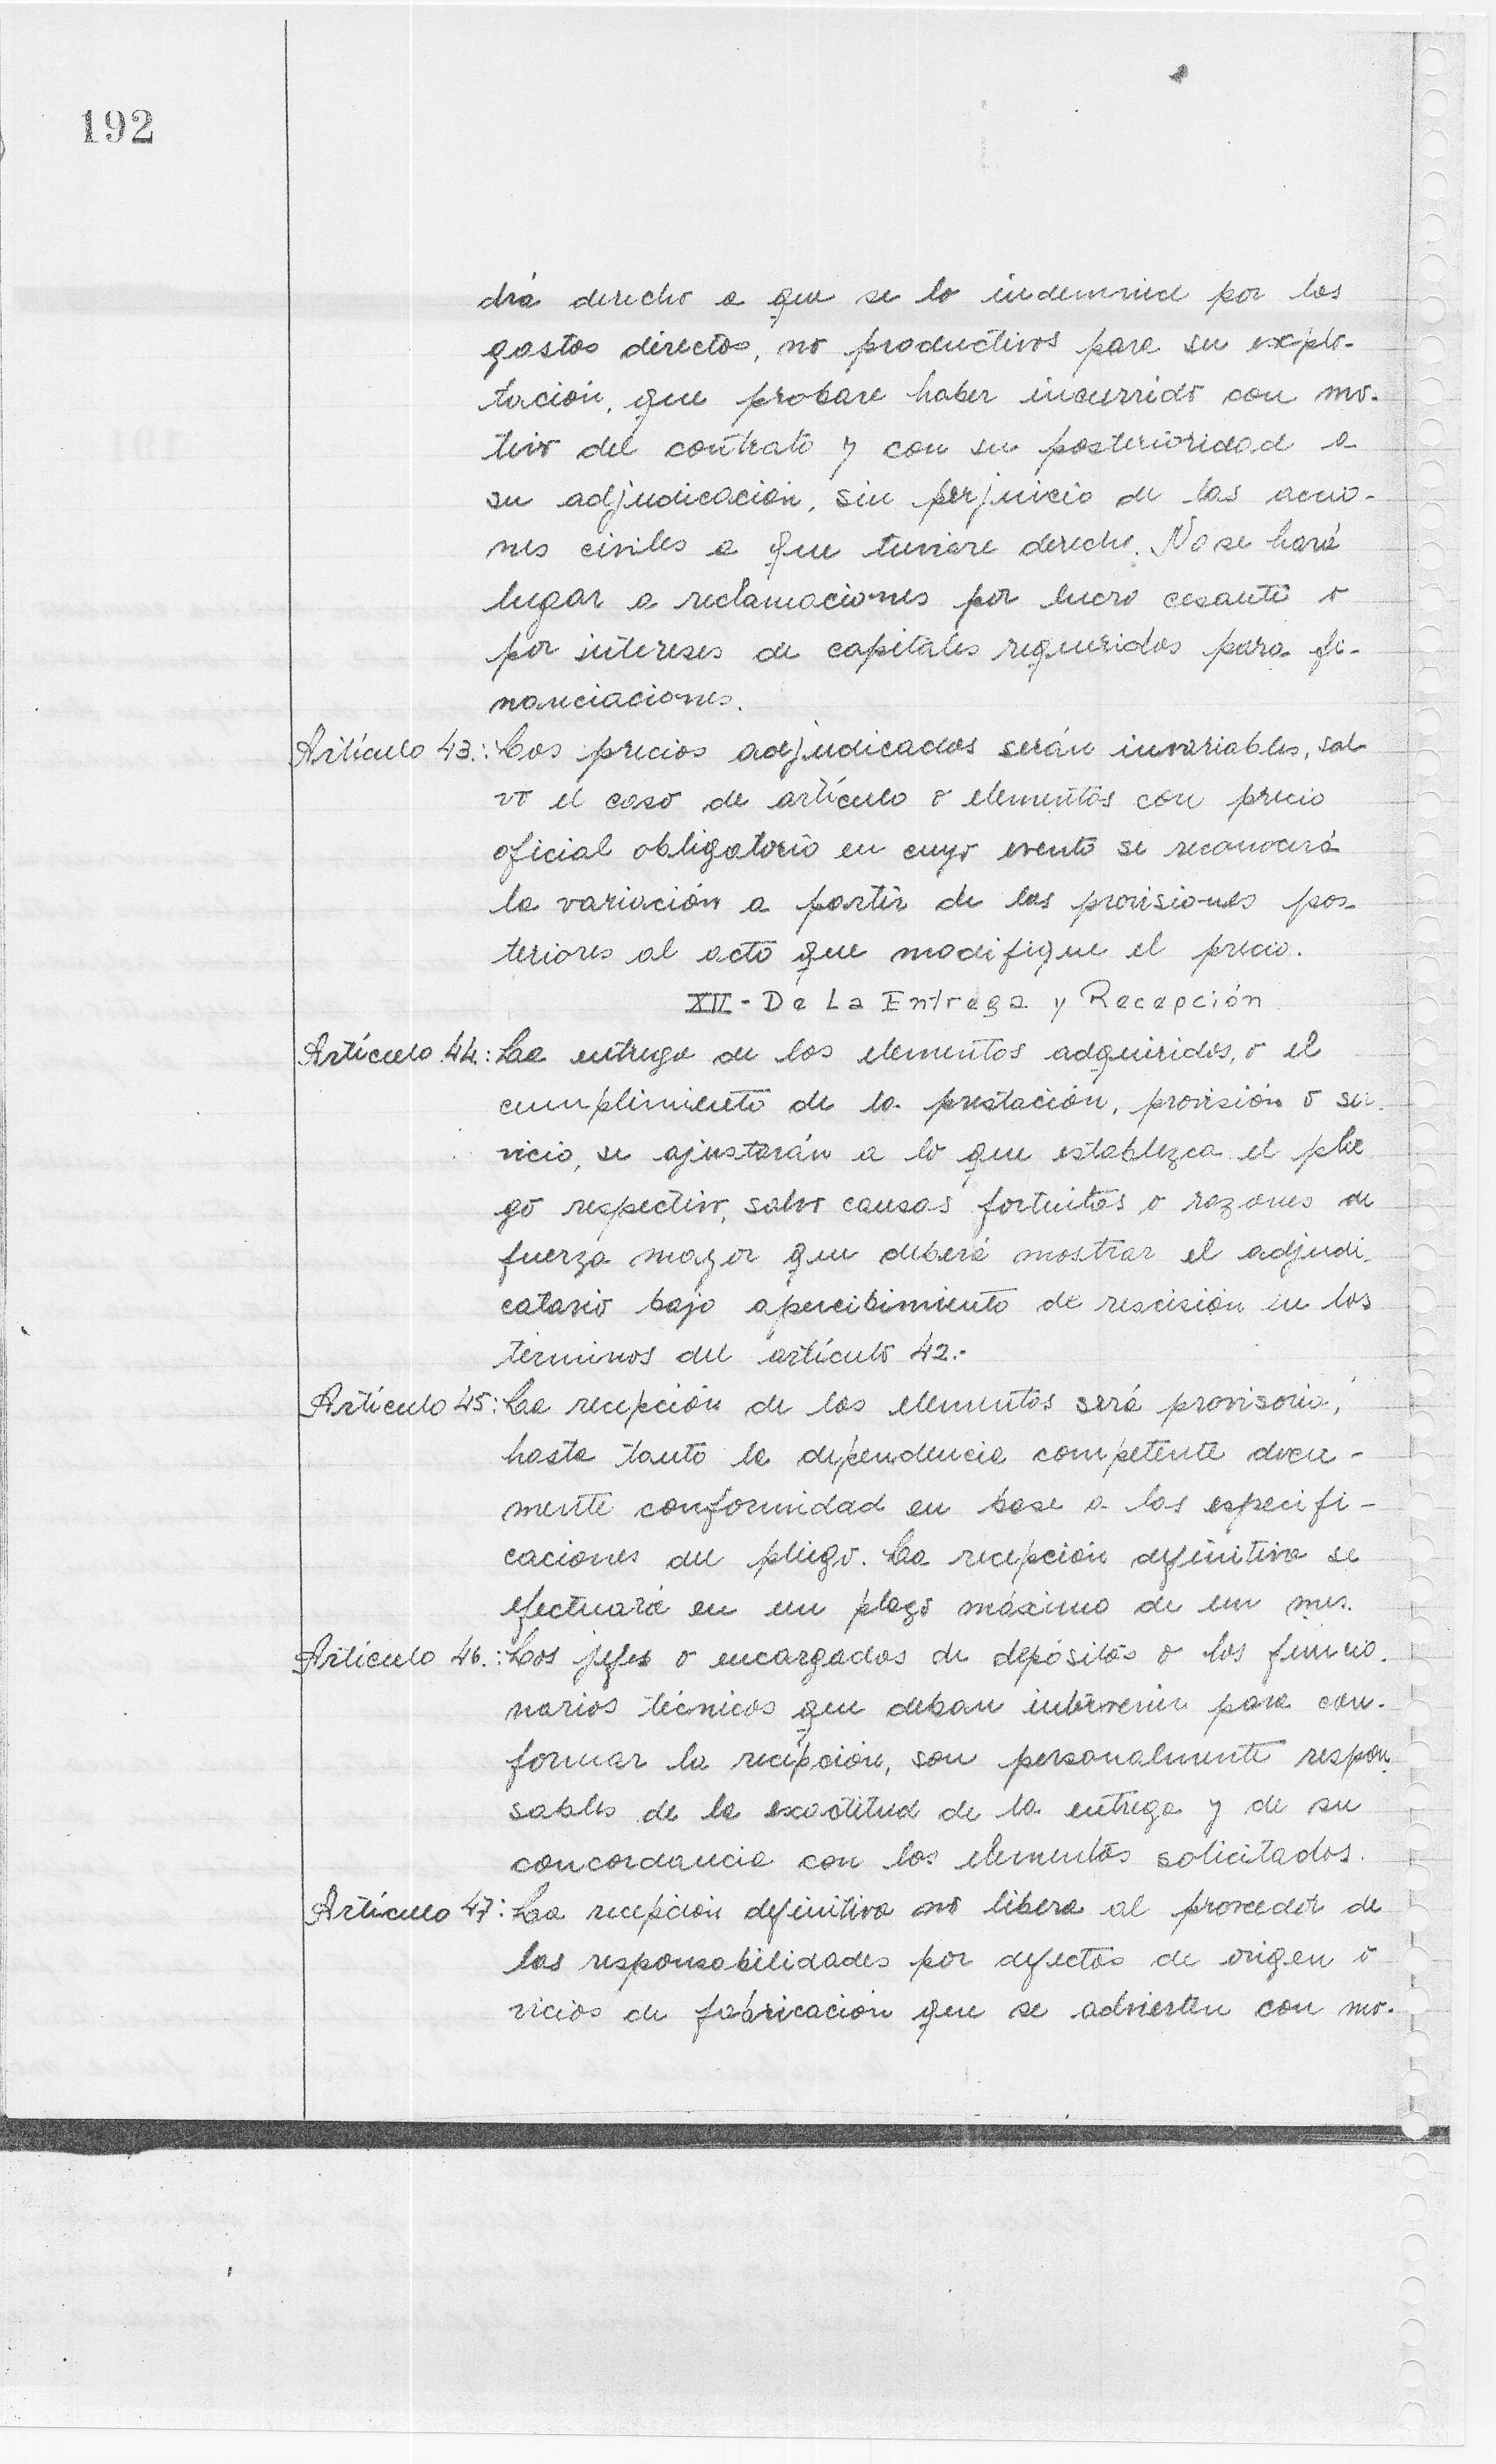 192
drá derecho a que se lo indemnice por los
gastos directos, no productivos para su explo-
tación, que probare haber incurrido con mo-
tivo del contrato y con su posterioridad a
su adjudicación, sin perjuicio de las accio-
nes civiles a que tuviere derecho. No se hará
lugar a reclamaciones por lucro cesante o
por intereses de capitales requeridos para fi-
nanciaciones.
Artículo 43.: Los precios adjudicados serán invariables, sal
vo el caso de artículo o elementos con precio
oficial obligatorio en cuyo evento se reconocerá
la variación a partir de las provisiones pos-
teriores al acto que modifique el precio.
XII - De La Entrega y Recepción
Artículo 44.: La entrega de los elementos adquiridos, o el
cumplimiento de la prestación, provisión o ser
vicio, se ajustarán a lo que establezca el plie
go respectivo, salvo causas fortuitas o razones de
fuerza mayor que deberá mostrar el adjudi-
catario bajo apercibimiento de rescisión en los
términos del artículo 42.-
Artículo 45: La recepción de los elementos será provisoria,
hasta tanto la dependencia competente docu-
mente conformidad en base a las especifi-
caciones del pliego. La recepción definitiva se
efectuará en un plazo máximo de un mes.
Artículo 46.: Los jefes o encargados de depósitos o los funcio-
narios técnicos que deban intervenir para con-
formar la recepción, son personalmente respon
sables de la exactitud de la entrega y de su
concordancia con los elementos solicitados.
Artículo 47: La recepción definitiva no libera al proveedor de
las responsabilidades por defectos de origen o
vicios de fabricación que se advierten con mo-